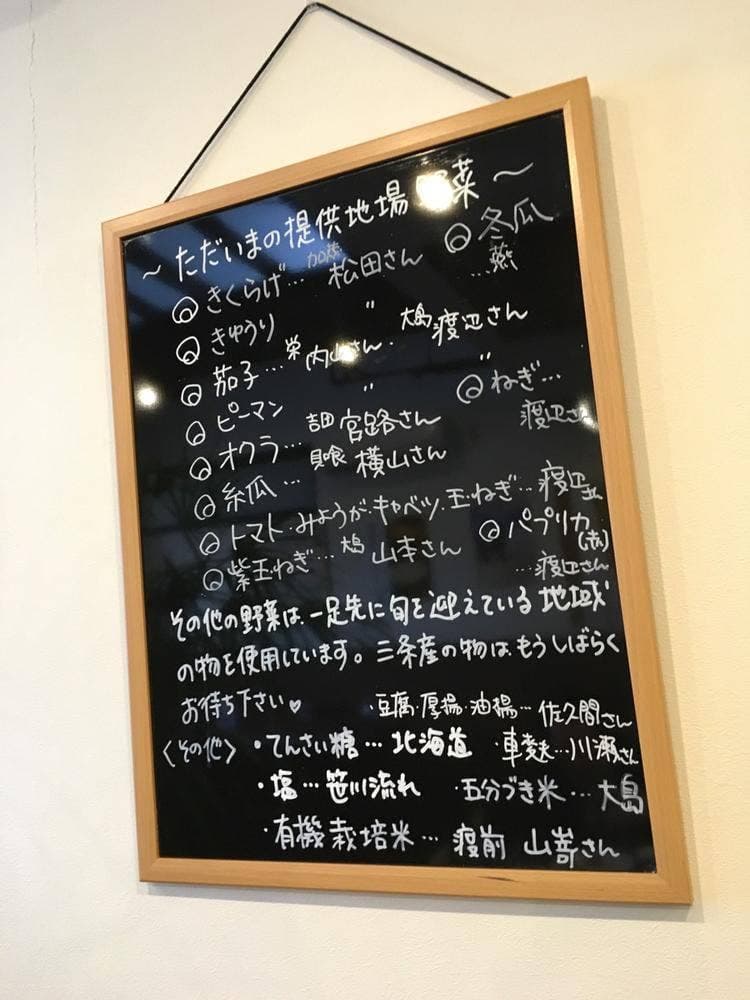 ～ ただいまの提供地場野菜 ～
◎ きくらげ… 加茂 松田さん
◎ 冬瓜
…燕
◎ きゅうり 〃
大島 渡辺さん
◎ 茄子… 栄 内山さん
◎ ピーマン 〃
◎ ねぎ… 〃
渡辺さん
◎ オクラ… 吉田 宮路さん
◎ 糸瓜… 横山さん
◎ トマト・みょうが・キャベツ・玉ねぎ…
◎ 紫玉ねぎ… 大島 山本さん
◎ パプリカ(赤)
…渡辺さん
その他の野菜は、一足先に旬を迎えている地域
の物を使用しています。三条産の物は、もうしばらく
お待ち下さい♥
・豆腐・厚揚・油揚… 佐久間さん
〈その他〉 ・てんさい糖… 北海道 ・車麩… 川瀬さん
・塩… 笹川流れ ・五分づき米… 大島
・有機栽培米… 山嵜さん